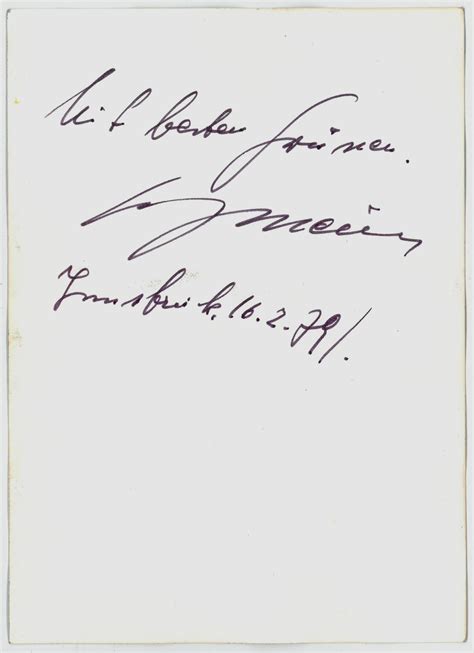 Mit besten Grüssen.
Innsbruck, 16.2.79/.